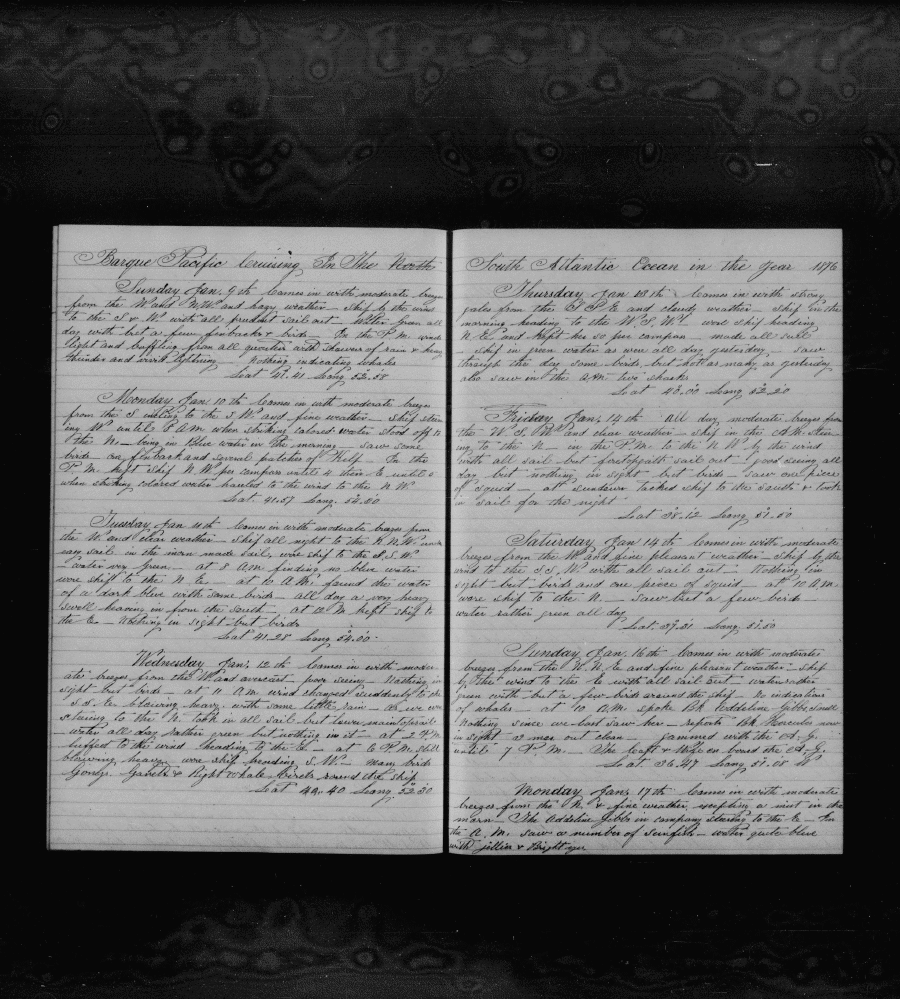 Barque Pacific Cruising In The North
Sunday Jan, 9th Comes in with moderate breezes
from the W and N.W. and hazy weather - ship by the wind
to the S & W. with all prudent sail out - Water green all
day with but a few finbacks & birds - In the P.M. wind
light and baffling from all quarters with showers of rain & heavy
thunder and vivid lightning Nothing indicating whales
Lat 41.41 Long 52.58
Monday Jan 10th Comes in with moderate breezes
from the S inclining to the S W. and fine weather - ship steer
ing W. until 8 A.M when striking colored water stood off to
the N. - being in Blue water in the morning - saw some
birds one finback and several patches of Kelp - In the
P. M. kept ship N. W per compass until 4 then E. until 5
when striking colored water hauled to the wind to the N W.
Lat 41.57 Long 54.50
Tuesday Jan 11th Comes in with moderate breezes from
the W. and clear weather - ship all night to the N.N.W. under
easy sail in the morn made sail, wore ship to the S.S.W.
water very green - at 8 A.M. finding no blue water
wore ship to the N. E - at 10 A.M. found the water
of a dark blue with some birds - all day a very heavy
swell heaving in from the South - at 12 M. kept ship to
the E - Nothing in sight but birds
Lat 41.28 Long 54.50
Wednesday Jan, 12th Comes in with moder-
ate breezes from the W and overcast poor seeing - Nothing in
sight but birds - at 11 A.M wind changed suddenly to the
S.S.E. blowing heavy with some little rain - 
to the N. took in all sail but lower maintopsail
water all day rather green but nothing in it - at 2 P.M.
luffed to the wind heading to the E - at 6 P.M. still
blowing heavy wore ship heading S.W. - many birds
& Right whale birds round the ship
Lat 42.40 Long 52.30
South Atlantic Ocean in the Year 1876
Thursday Jan 13th Comes in with strong
gales from the S S E and cloudy weather ship in the
morning heading to the W.S.W. - wore ship heading
N. E and kept her so per compass - made all sail
- ship in green water as were all day yesterday - saw
through the day some birds, but not as many as yesterday
also saw in the A.M two sharks
Lat 40.00 Long 52.20
Friday Jan, 14th all day moderate breezes from
the W. S. W and clear weather - ship in the A.M. steer
ing to the N - in the P.M. to the N W by the wind
with all sail but foretopgalt sail out - good seeing all
day but nothing in sight but birds saw one piece
of squid - at sundown tacked ship to the South & took
in sail for the night
Lat 38.12 Long 51.50
Saturday Jan 14th Comes in with moderate
breezes from the W. and fine pleasant weather - Ship by the
wind to the S.S.W. with all sail out - Nothing in
sight but birds and one piece of squid - at 10 A.M.
wore ship to the N. - saw but a few birds -
water rather green all day
Lat. 37.51 Long 51.50
Sunday Jan, 16th Comes in with moderate
breezes from the W. N. E and fine pleasant weather - ship
by the wind to the E with all sail out water rather
green with but a few birds around the ship - No indication
of whales - at 10 A.M. spoke Bk Addeline Gibbs, Small
Nothing since we last saw her - reports Bk Hercules now
in sight 2 mos out clean - gammed with the A. G.
until 7 P. M. - The Capt & Wife on board the A. G.
Lat 36.47 Long 51.08 W
Monday Jan, 17th Comes in with moderate
breezes from the N. & fine weather, excepting a mist in the
morn - The Addeline Gibbs in company steering to the E - In
the A, M, saw a number of sunfish - water quite blue
with jellies & Bright